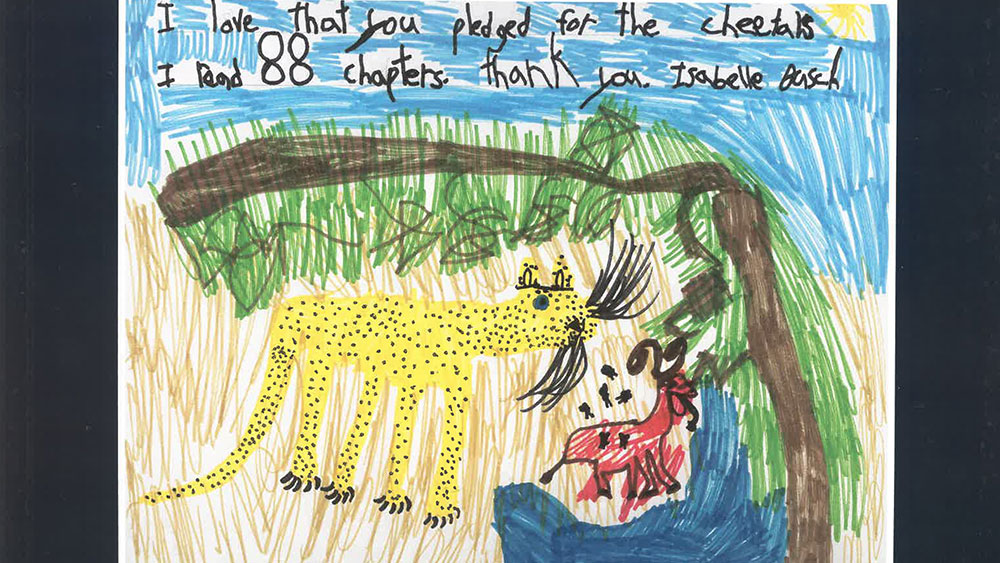 I love that you pledged for the cheetahs
I read 88 chapters. thank you. Isabelle Busch